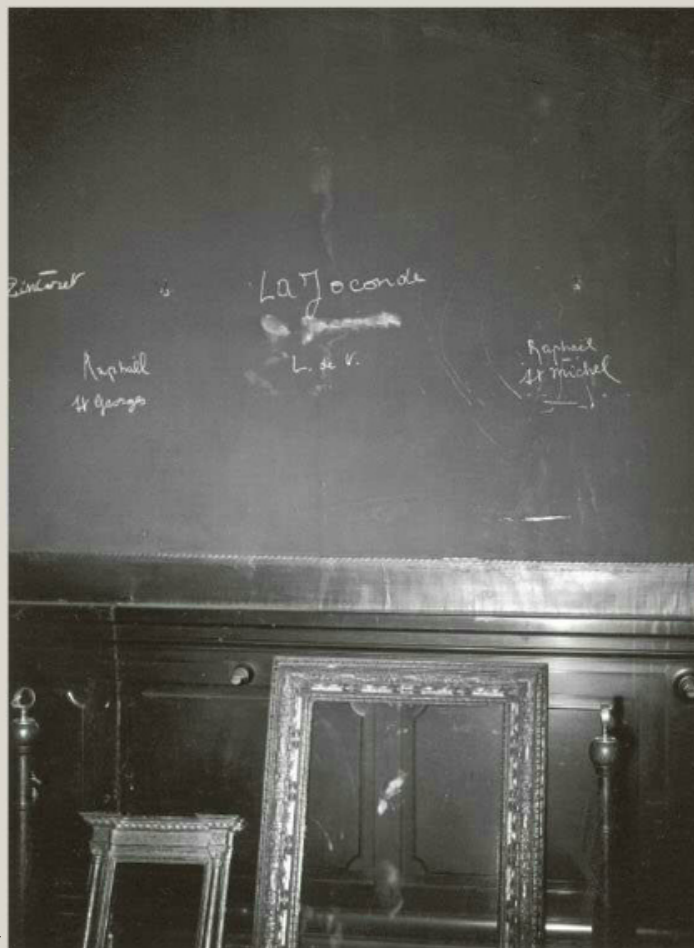 Tintoret
La Joconde
L. de V.
Raphaël
St Georges
Raphaël
St Michel